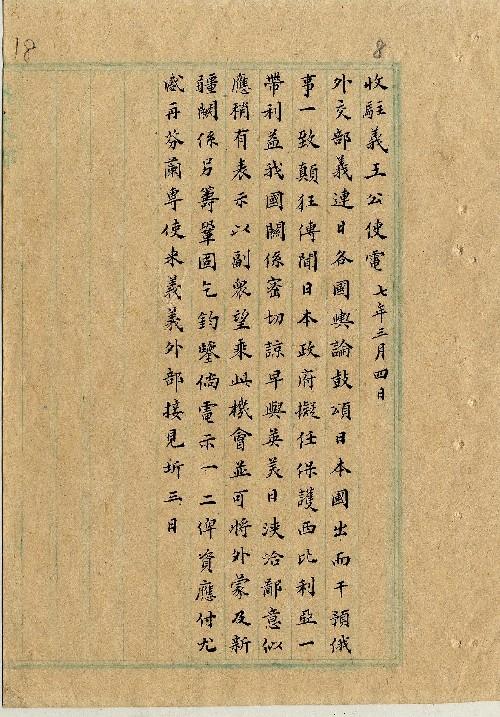 18
8
收駐義王公使電 七年三月四日
外交部義連日各國輿論鼓頌日本國出而干預俄
事一致顛狂傳聞日本政府擬任保護西比利亞一
帶利益我國關係密切諒早與英美日浹洽鄙意似
應稍有表示以副衆望乘此機會並可將外蒙及新
疆關係另籌鞏固乞鈞鑒偏電示一二俾資應付尤
感再芬蘭專使来義義外部接見圻三日